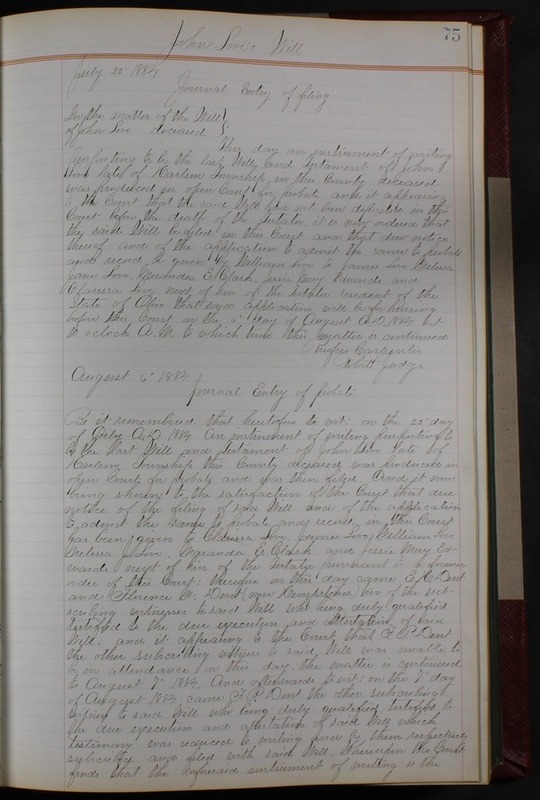 75
John Love's Will
July 22d 1884
Journal Entry of filing
In the matter of the Will
of John Love deceased
This day an instrument of writing
purporting to be the last Will and Testament of John
Love late of Harlem Township in this County deceased
was produced in open Court for probate and it appearing
to the Court that the said Will has not been deposited in this
Court before the death of the testator it is now ordered that
the said Will be filed in this Court and that due notice
thereof and of the application to admit the same to probate
and record be given to William Love James Love Melissa
Jane Love, Marinda E Clark, Jessie May Edwards and
Clarissa Love next of kin of the testator resident of the
State of Ohio that said application will be for hearing
before this Court on the 6" day of August A.D. 1884 at
10 oclock A.M. to which time this matter is continued
Rufus Carpenter
Probate Judge
August 6" 1884
Journal Entry of probate
Be it remembered that heretofore to wit: on the 22" day
of July A.D. 1884 An instrument of writing purporting to
be the last Will and testament of John Love late of
Harlem Township this County deceased was produced in
open Court for probate and was then filed. And it now
being shown to the satisfaction of the Court that due
notice of the filing of said Will and of the application
to admit the same to probate and record in this Court
has been given to Clarissa Love. James Love, William Love
Melissa J. Love. Marinda E. Clark and Jessie May Ed-
wards next of kin of the testator pursuant to a former
order of this Court: therefore on this day came E. C. Dent
and Florence M. Dent two of the sub-
scribing witnesses to said Will who being duly qualified
testified to the due execution and attestation of said
Will: and it appearing to the Court that F. P. Dent
the other subscribing witness to said Will was unable to
be in attendance on this day. the matter is continued
to August 7" 1884. And afterwards to wit: on the 7" day
of August 1884 came F. P. Dent the other subscribing
witness to said Will who being duly qualified testified to
the due execution and attestation of said Will which
testimony was reduced to writing and by them respectively
subscribed and filed with said Will. Whereupon the Court
finds that the aforesaid instrument of writing is the